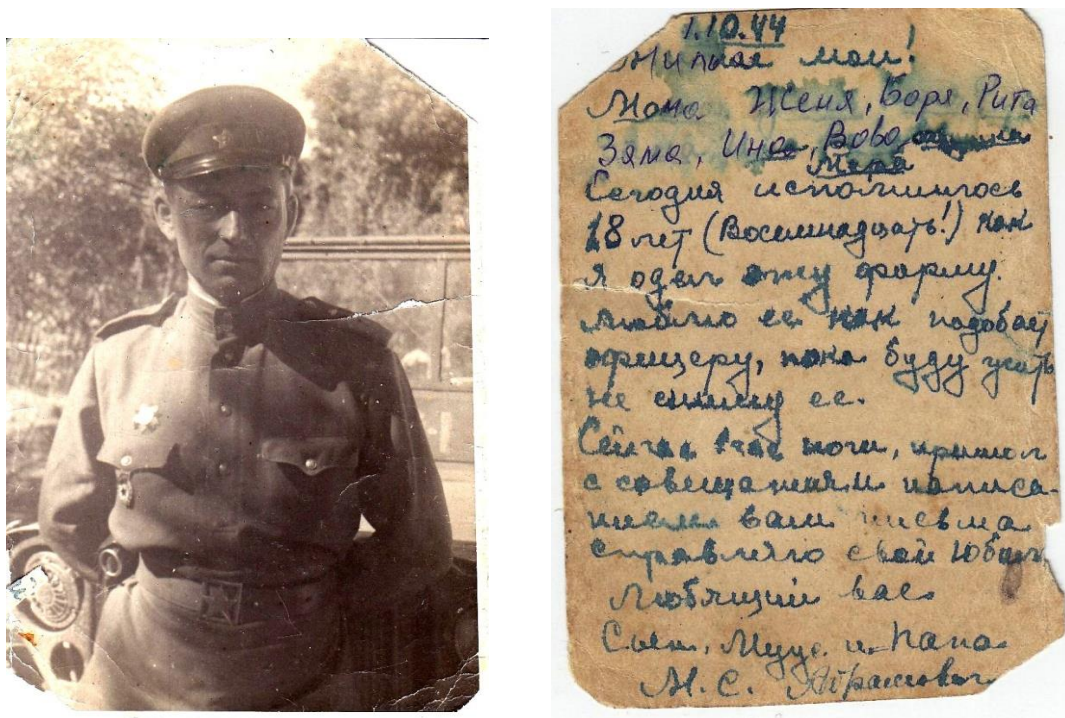 1.10.44
Милые мои!
Мама Женя, Боря, Рита
Зяма, Ина, Вова,
Мера
Сегодня исполнилось
18 лет (Восемнадцать!) как
я одел эту форму.
Люблю ее как подобает
офицеру, пока буду жить
не сниму ее.
Сейчас час ночи, пришел
с совещания и написа-
нием вам письма
справляю свой юбилей
Любящий вас
Сын, Муж и Папа
М. С. Абрамович